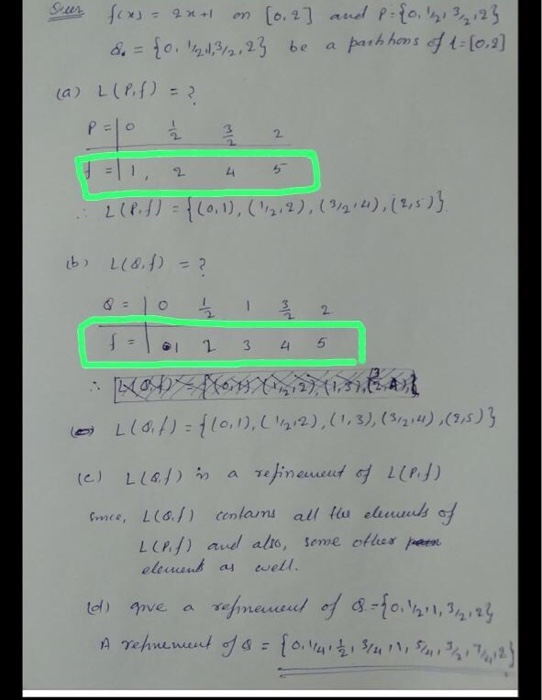 f(x) = 2x+1 on [0,2] and P={0, 1/2, 3/2, 2}
Q = {0, 1/2, 1, 3/2, 2} be a partitions of I=[0,2]
(a) L(P,f) = ?
P = | 0 1/2 3/2 2
f = | 1, 2 4 5
∴ L(P,f) = {(0,1), (1/2,2), (3/2,4), (2,5)}
(b) L(Q,f) = ?
Q = | 0 1/2 1 3/2 2
f = | 1 2 3 4 5
L(Q,f) = {(0,1), (1/2,2), (1,3), (3/2,4), (2,5)}
(c) L(Q,f) is a refinement of L(P,f)
Since, L(Q,f) contains all the elements of
L(P,f) and also, some other
element as well.
(d) give a refinement of Q={0, 1/2, 1, 3/2, 2}
A refinement of Q = {0, 1/4, 1/2, 3/4, 1, 5/4, 3/2, 7/4, 2}